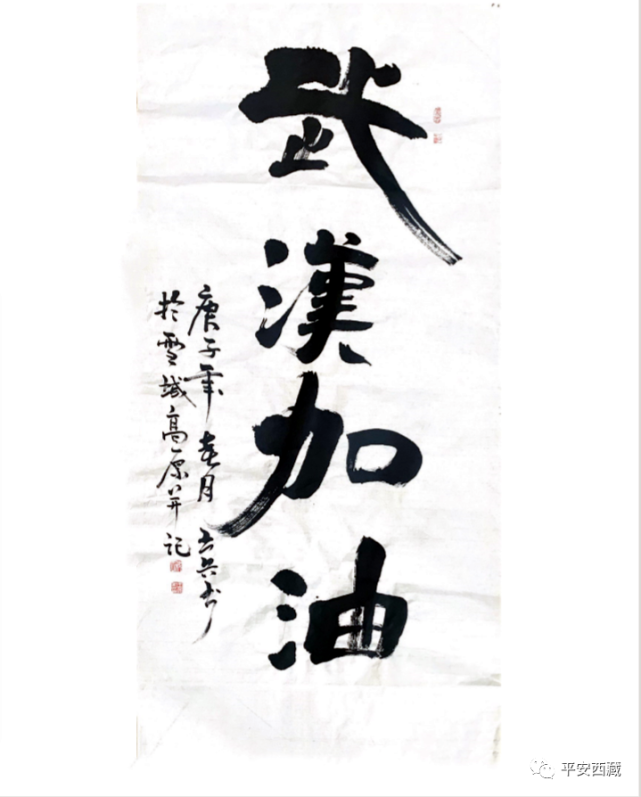 武漢加油
庚子年春月士兵书
於雪域高原并记
平安西藏